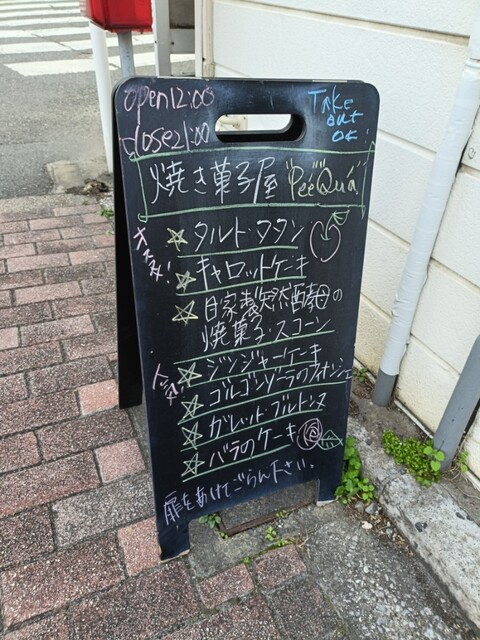 open12:00
close21:00
Take
out
OK
焼き菓子屋 "PeeQua"
オススメ!
タルト・タタン
キャロットケーキ
自家製天然酵母の
焼菓子・スコーン
人気
ジンジャーケーキ
ゴルゴンゾーラのフィナンシェ
ガレット・ブルトンヌ
バラのケーキ
扉をあけてごらん下さい。